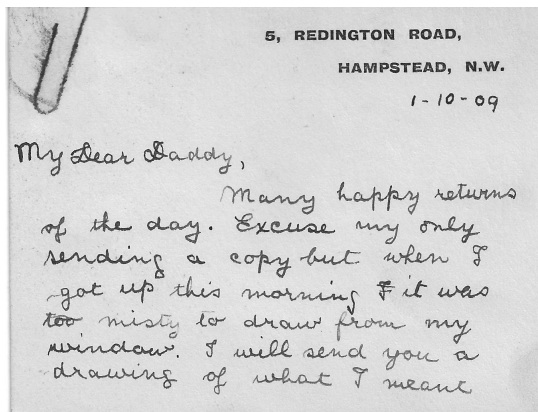 5, REDINGTON ROAD,
HAMPSTEAD, N.W.
1-10-09
My Dear Daddy,
Many happy returns
of the day. Excuse my only
sending a copy but when I
got up this morning F it was
too misty to draw from my
window. I will send you a
drawing of what I meant